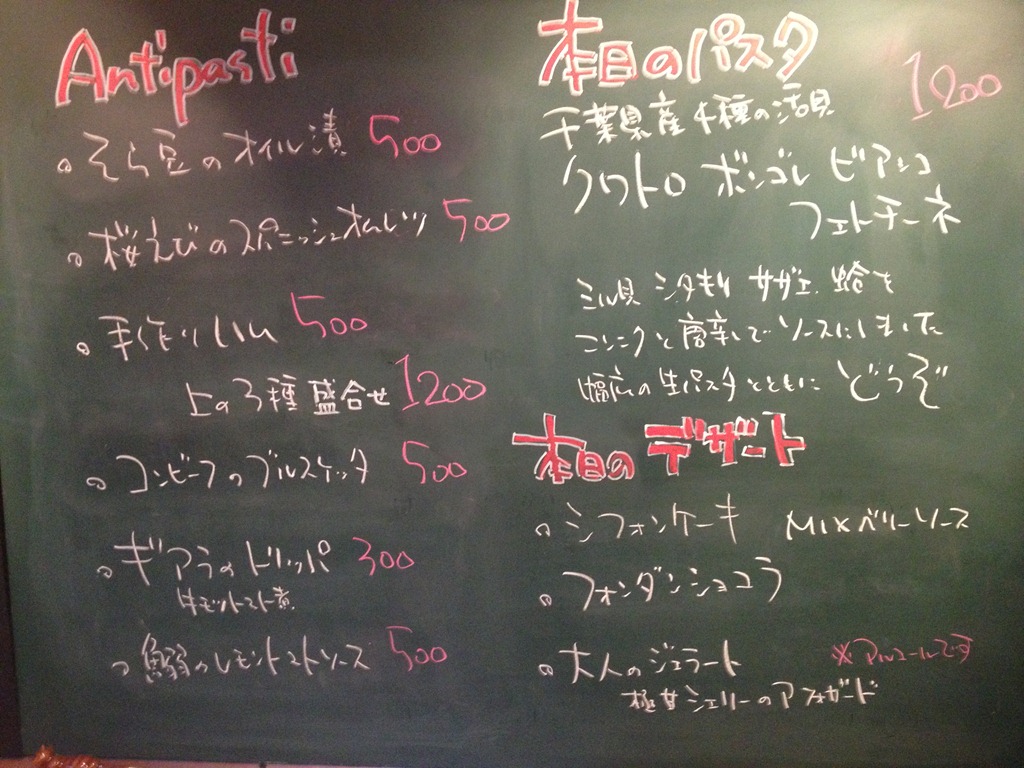 Antipasti
そら豆のオイル漬 500
桜えびのスパニッシュオムレツ 500
手作りハム 500
上の3種盛合せ 1200
コンビーフのブルスケッタ 500
ギアラのトリッパ 300
牛モツトマト煮
鰯のレモントマトソース 500
本日のパスタ 1200
千葉県産4種の活貝
クワトロ ボンゴレ ビアンコ
フェトチーネ
ミル貝 シタモリ サザエ 蛤を
ニンニクと唐辛しで ソースにしました
幅広の生パスタとともに どうぞ
本日の デザート
シフォンケーキ MIXベリーソース
フォンダンショコラ
大人のジェラート ※アルコールです
極甘シェリーのアフォガード